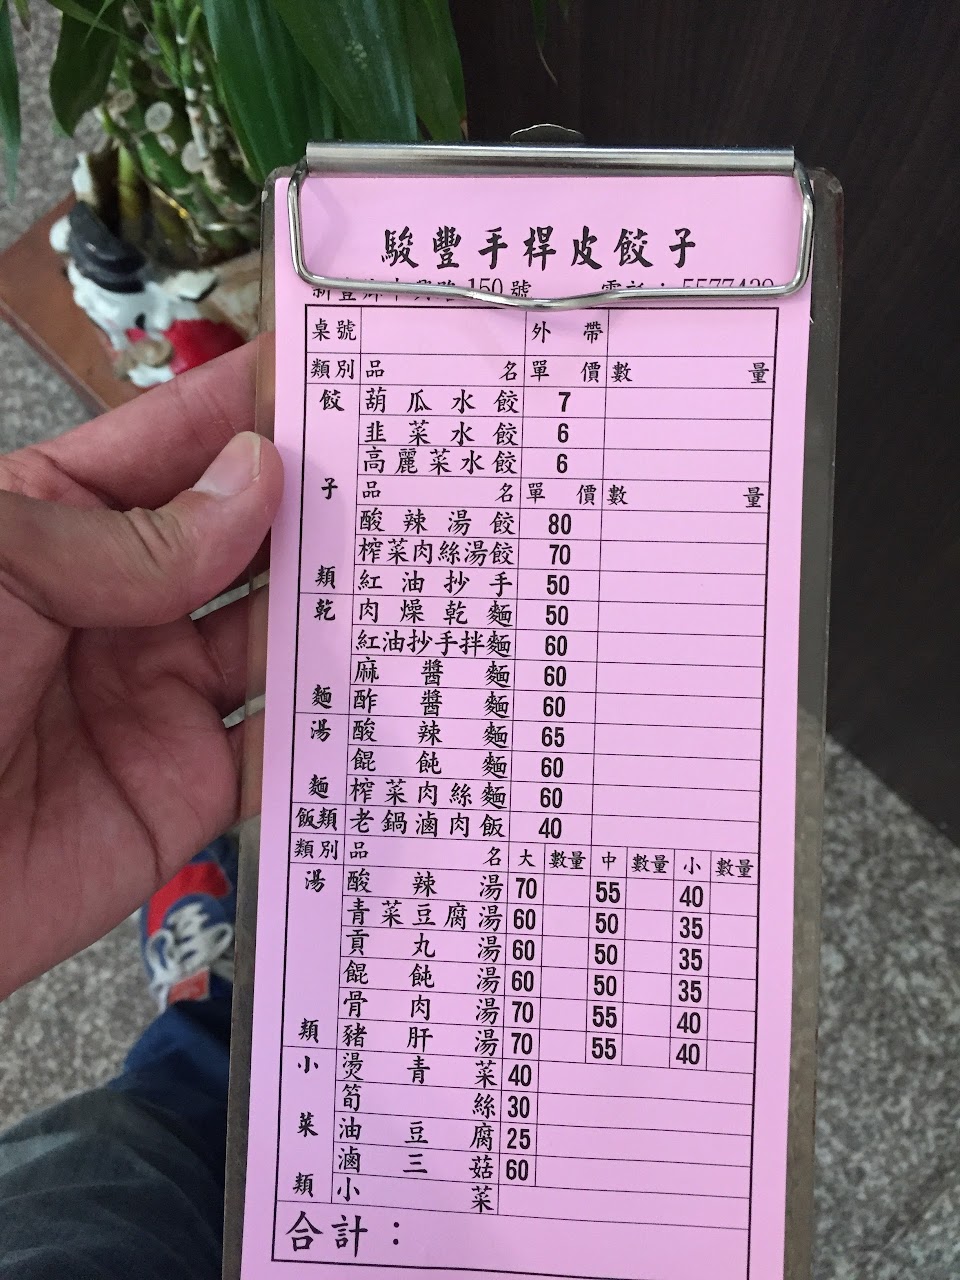 駿豐手桿皮餃子
150號
桌號 外帶
類別 品名 單價 數量
餃子類
葫瓜水餃 7
韭菜水餃 6
高麗菜水餃 6
品名 單價 數量
酸辣湯餃 80
榨菜肉絲湯餃 70
紅油抄手 50
乾麵
肉燥乾麵 50
紅油抄手拌麵 60
麻醬麵 60
酢醬麵 60
湯麵
酸辣麵 65
餛飩麵 60
榨菜肉絲麵 60
飯類 老鍋滷肉飯 40
類別 品名 大 數量 中 數量 小 數量
湯類
酸辣湯 70 55 40
青菜豆腐湯 60 50 35
貢丸湯 60 50 35
餛飩湯 60 50 35
骨肉湯 70 55 40
豬肝湯 70 55 40
小菜類
燙青菜 40
筍絲 30
油豆腐 25
滷三菇 60
小菜
合計：